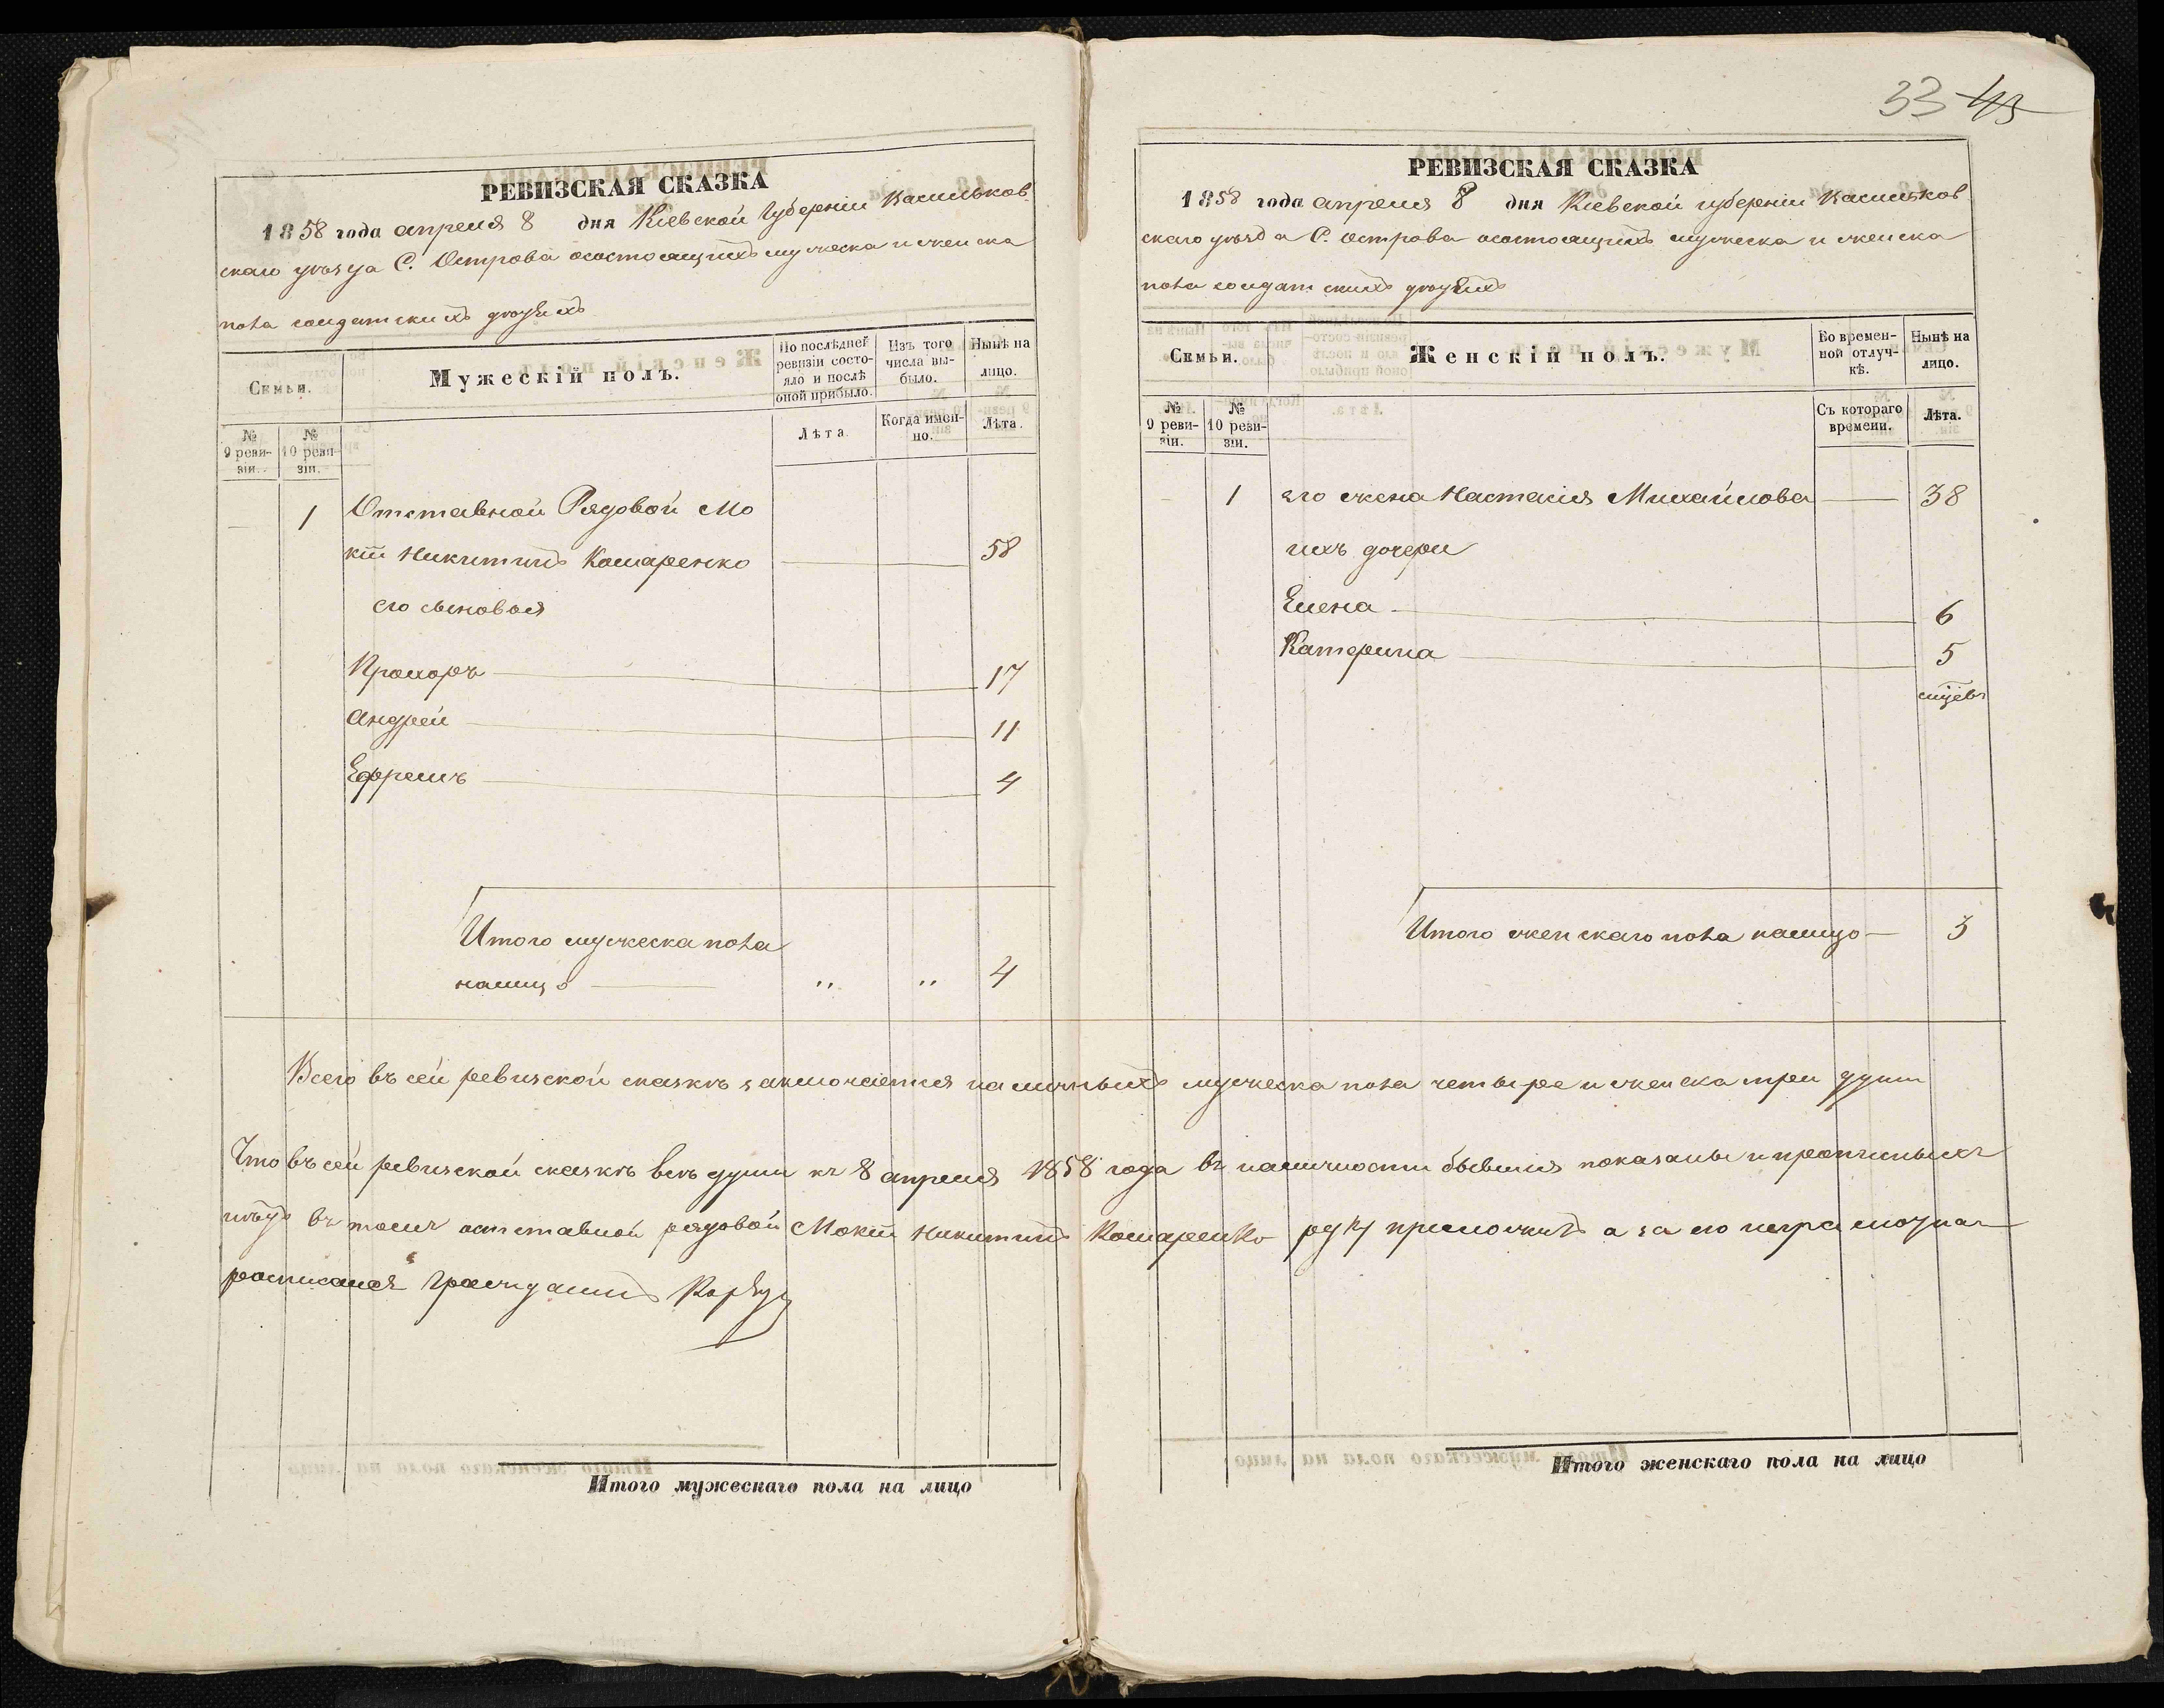 33 43
РЕВИЗСКАЯ СКАЗКА
1858 года апреля 8 дня Кіевской Губерніи Васильков
скаго уѣзда С. Острова осостоящихъ мужеска и женска
пола солдатскихъ
Семьи.
Мужескій полъ.
По послѣдней ревизіи состояло и послѣ оной прибыло.
Изъ того числа выбыло.
Нынѣ на лицо.
№ 9 ревизіи.
№ 10 ревизіи.
Лѣта
Когда именно.
Лѣта.
— 1 Отставной Рядовой Мо
кій Никитинъ Комаренко — — 58
его сыновья
Прохоръ — 17
Андрей — 11
Ефремъ — 4
Итого мужеска пола
налицо — " " 4
РЕВИЗСКАЯ СКАЗКА
1858 года апреля 8 дня Кіевской губерніи Васильков
скаго уѣзда С. Острова осостоящихъ мужеска и женска
пола солдатскихъ
Семьи.
Женскій полъ.
Во временной отлучкѣ.
Нынѣ на лицо.
№ 9 ревизіи.
№ 10 ревизіи.
Съ котораго времени.
Лѣта.
— 1 его жена Настасія Михайлова — 38
ихъ дочери
Елена — 6
Катерина — 5
Итого женскаго пола налицо — 3
Всего въ сей ревизской сказкѣ заключается наличныхъ мужеска пола четыре и женска три души
Что въ сей ревизской сказкѣ всѣ души къ 8 апреля 1858 года въ наличности бывшія показаны и прописныхъ
нѣтъ въ томъ отставной рядовой Мокій Никитинъ Комаренко руку приложилъ а за его неграмотнаг
росписался Гражданинъ
Итого мужескаго пола на лицо
Итого женскаго пола на лицо